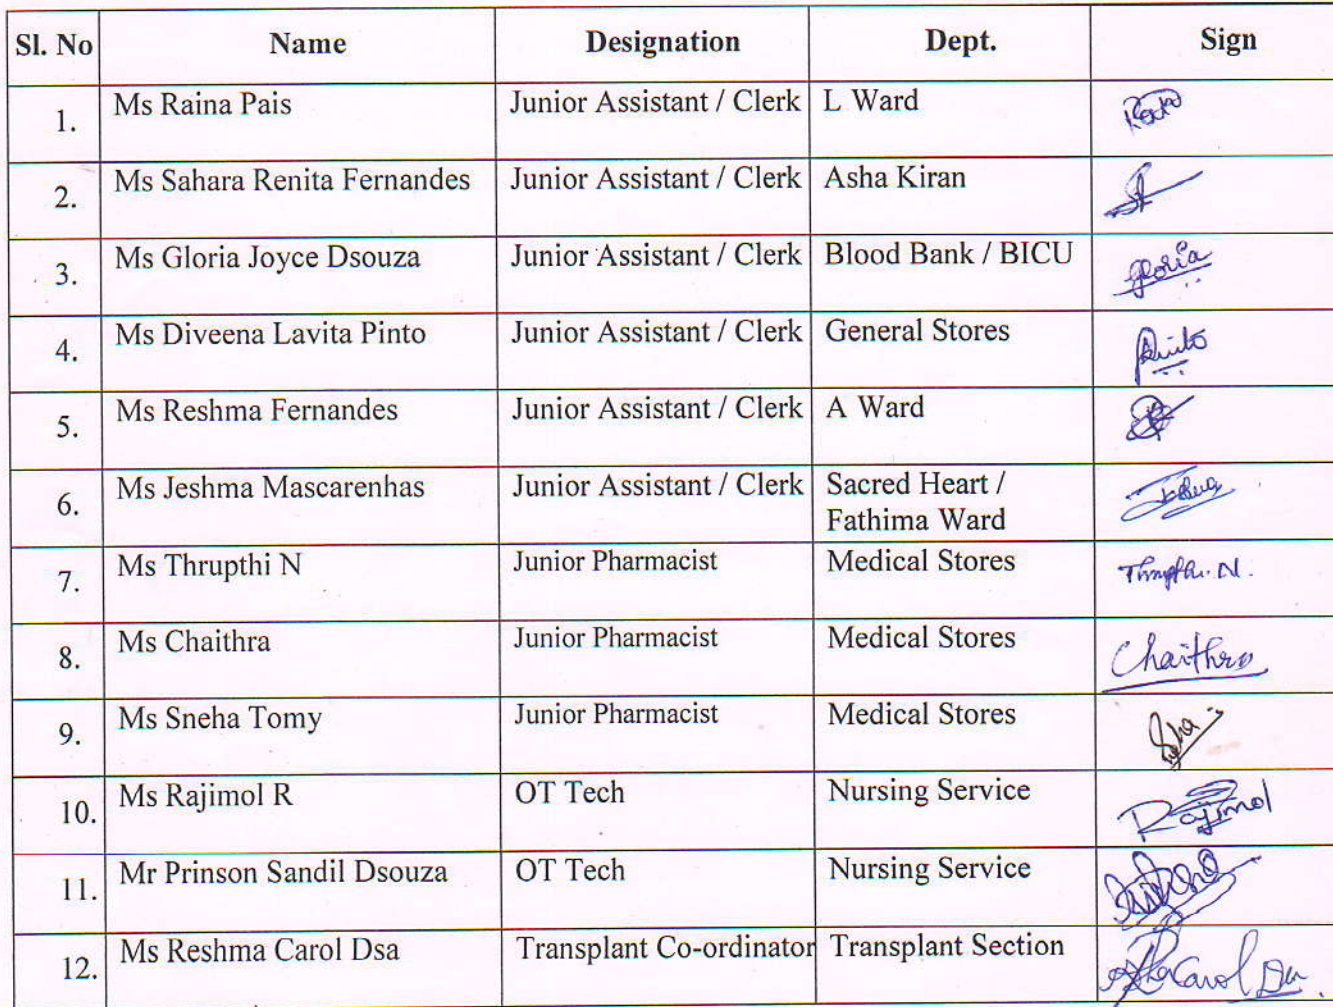 Sl. No Name Designation Dept. Sign
1. Ms Raina Pais Junior Assistant / Clerk L Ward
2. Ms Sahara Renita Fernandes Junior Assistant / Clerk Asha Kiran
3. Ms Gloria Joyce Dsouza Junior Assistant / Clerk Blood Bank / BICU Gloria
4. Ms Diveena Lavita Pinto Junior Assistant / Clerk General Stores Pinto
5. Ms Reshma Fernandes Junior Assistant / Clerk A Ward
6. Ms Jeshma Mascarenhas Junior Assistant / Clerk Sacred Heart /
Fathima Ward
7. Ms Thrupthi N Junior Pharmacist Medical Stores Thrupthi. N.
8. Ms Chaithra Junior Pharmacist Medical Stores Chaithra
9. Ms Sneha Tomy Junior Pharmacist Medical Stores
10. Ms Rajimol R OT Tech Nursing Service Rajimol
11. Mr Prinson Sandil Dsouza OT Tech Nursing Service
12. Ms Reshma Carol Dsa Transplant Co-ordinator Transplant Section Carol Dsa